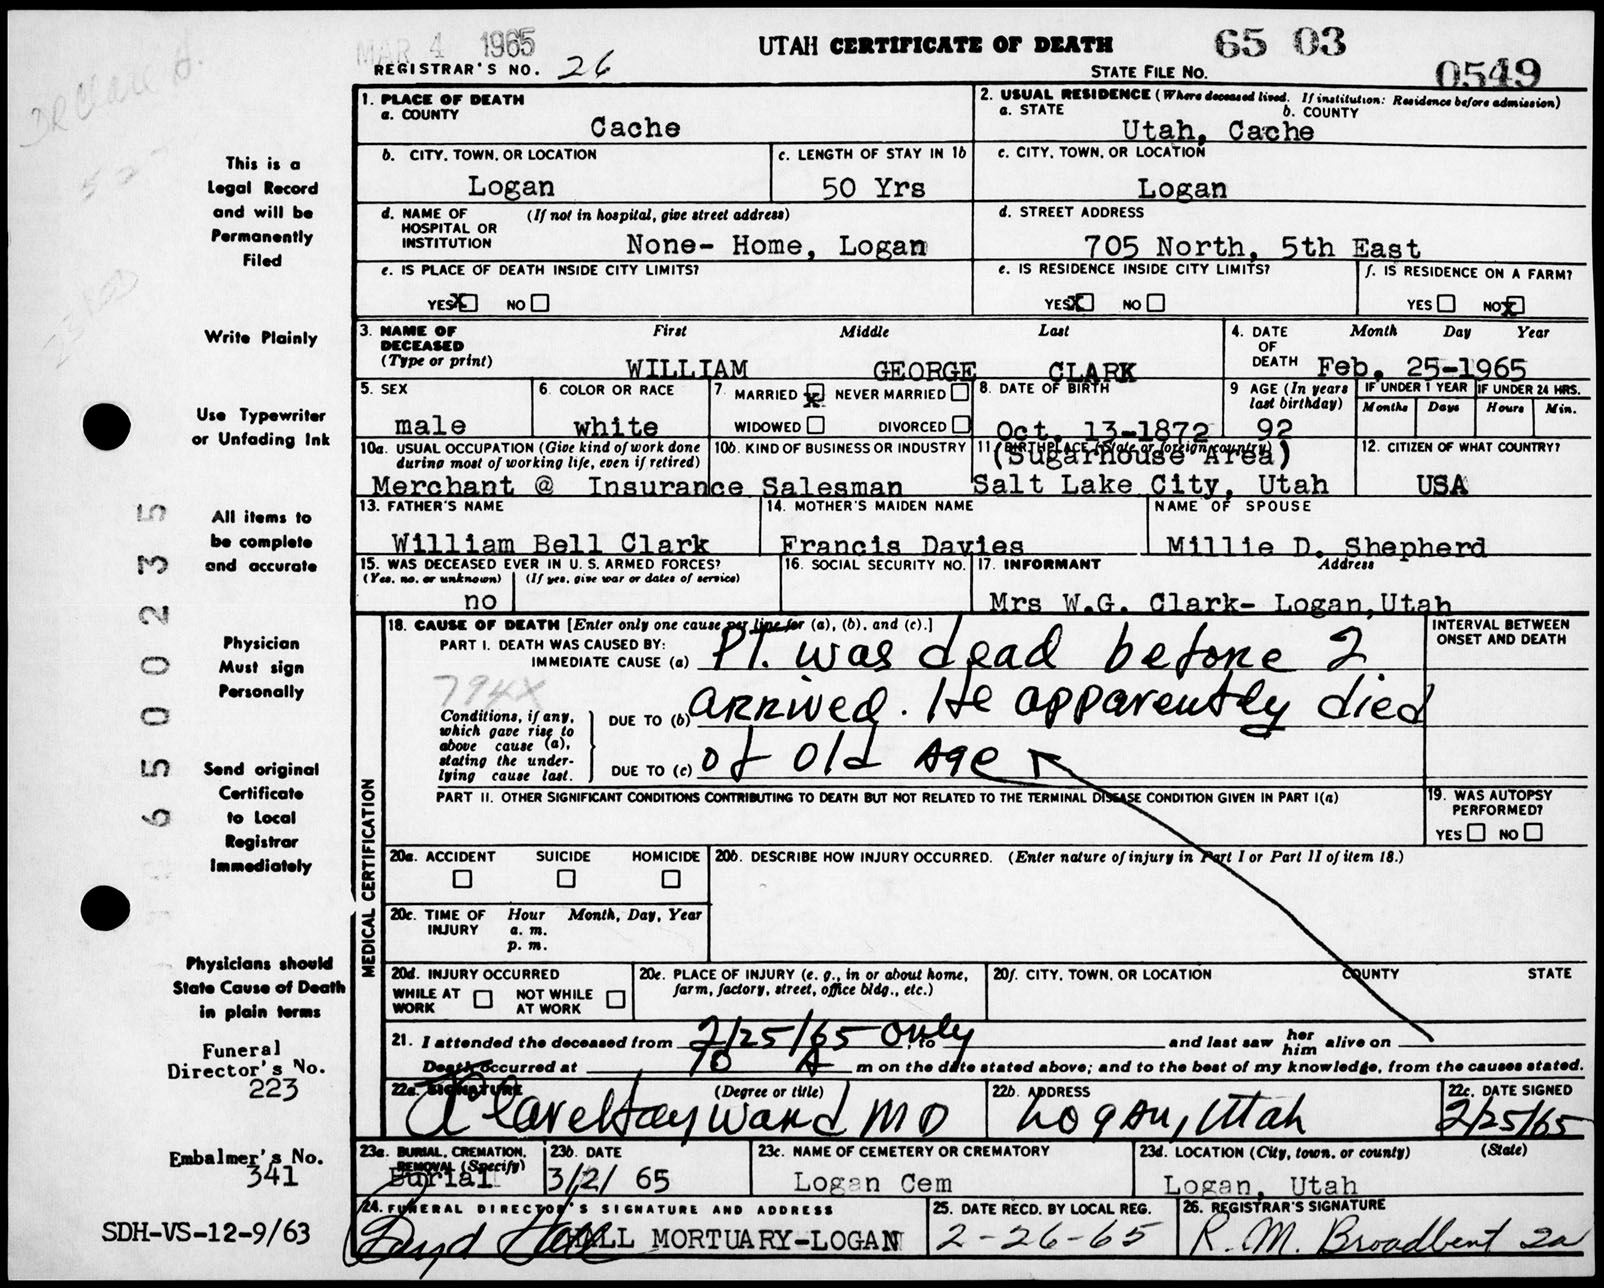 MAR 4 1965
UTAH CERTIFICATE OF DEATH
65 03
REGISTRAR'S NO. 26
STATE FILE NO. 0549
This is a
Legal Record
and will be
Permanently
Filed
Write Plainly
Use Typewriter
or Unfading Ink
All items to
be complete
and accurate
Physician
Must sign
Personally
Send original
Certificate
to Local
Registrar
Immediately
Physicians should
State Cause of Death
in plain terms
Funeral
Director's No.
223
Embalmer's No.
341
SDH-VS-12-9/63
65002355
1. PLACE OF DEATH
a. COUNTY
Cache
2. USUAL RESIDENCE (Where deceased lived. If institution: Residence before admission)
a. STATE b. COUNTY
Utah, Cache
b. CITY, TOWN, OR LOCATION
Logan
c. LENGTH OF STAY IN 1b
50 Yrs
c. CITY, TOWN, OR LOCATION
Logan
d. NAME OF (If not in hospital, give street address)
HOSPITAL OR
INSTITUTION
None- Home, Logan
d. STREET ADDRESS
705 North, 5th East
e. IS PLACE OF DEATH INSIDE CITY LIMITS?
YES X NO
e. IS RESIDENCE INSIDE CITY LIMITS?
YES X NO
f. IS RESIDENCE ON A FARM?
YES NO X
3. NAME OF First Middle Last
DECEASED
(Type or print)
WILLIAM GEORGE CLARK
4. DATE Month Day Year
OF
DEATH Feb. 25-1965
5. SEX
male
6. COLOR OR RACE
white
7. MARRIED X NEVER MARRIED
WIDOWED DIVORCED
8. DATE OF BIRTH
Oct. 13-1872
9 AGE (In years
last birthday)
92
IF UNDER 1 YEAR IF UNDER 24 HRS.
Months Days Hours Min.
10a. USUAL OCCUPATION (Give kind of work done
during most of working life, even if retired)
10b. KIND OF BUSINESS OR INDUSTRY
Merchant @ Insurance Salesman
11. BIRTHPLACE (State or foreign country)
(Sugarhouse Area)
Salt Lake City, Utah
12. CITIZEN OF WHAT COUNTRY?
USA
13. FATHER'S NAME
William Bell Clark
14. MOTHER'S MAIDEN NAME
Francis Davies
NAME OF SPOUSE
Millie D. Shepherd
15. WAS DECEASED EVER IN U. S. ARMED FORCES?
(Yes, no, or unknown) (If yes, give war or dates of service)
no
16. SOCIAL SECURITY NO.
17. INFORMANT Address
Mrs W.G. Clark- Logan,Utah
MEDICAL CERTIFICATION
18. CAUSE OF DEATH [Enter only one cause per line for (a), (b), and (c).]
INTERVAL BETWEEN
ONSET AND DEATH
PART I. DEATH WAS CAUSED BY:
IMMEDIATE CAUSE (a) PT. was dead before I
794X
Conditions, if any,
which gave rise to
above cause (a),
stating the under-
lying cause last.
DUE TO (b) arrived. He apparently died
DUE TO (c) of Old Age
PART II. OTHER SIGNIFICANT CONDITIONS CONTRIBUTING TO DEATH BUT NOT RELATED TO THE TERMINAL DISEASE CONDITION GIVEN IN PART I(a)
19. WAS AUTOPSY
PERFORMED?
YES NO
20a. ACCIDENT SUICIDE HOMICIDE
20b. DESCRIBE HOW INJURY OCCURRED. (Enter nature of injury in Part I or Part II of item 18.)
20c. TIME OF Hour Month, Day, Year
INJURY a. m.
p. m.
20d. INJURY OCCURRED
WHILE AT NOT WHILE
WORK AT WORK
20e. PLACE OF INJURY (e. g., in or about home,
farm, factory, street, office bldg., etc.)
20f. CITY, TOWN, OR LOCATION COUNTY STATE
21. I attended the deceased from 2/25/65 only, to and last saw her
him alive on
Death occurred at 10 A m on the date stated above; and to the best of my knowledge, from the causes stated.
22a. SIGNATURE (Degree or title)
Clare Hayward MD
22b. ADDRESS
Logan, Utah
22c. DATE SIGNED
2/25/65
23a. BURIAL, CREMATION,
REMOVAL (Specify)
Burial
23b. DATE
3/2/ 65
23c. NAME OF CEMETERY OR CREMATORY
Logan Cem
23d. LOCATION (City, town, or county) (State)
Logan, Utah
24. FUNERAL DIRECTOR'S SIGNATURE AND ADDRESS
HALL MORTUARY-LOGAN
25. DATE RECD. BY LOCAL REG.
2-26-65
26. REGISTRAR'S SIGNATURE
R. M. Broadbent